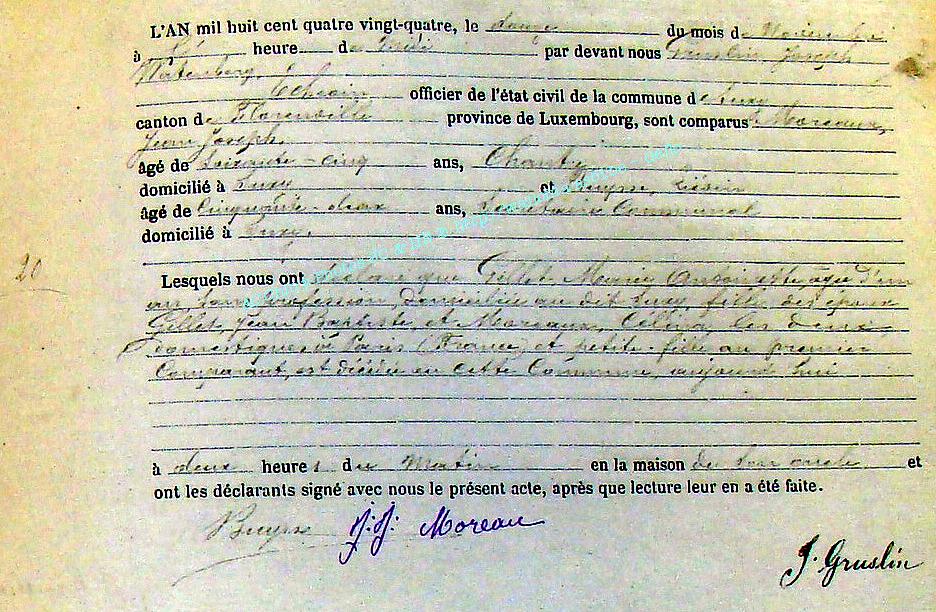 L'AN mil huit cent quatre vingt-quatre, le douze du mois de Novembre
à heure de par devant nous Gruslin Joseph
Échevin officier de l'état civil de la commune de Suxy
canton de Florenville province de Luxembourg, sont comparus Moreaux,
Jean Joseph,
âgé de soixante-cinq ans,
domicilié à Suxy et
âgé de Cinquante-deux ans, Secrétaire Communal
domicilié à Suxy.
20
Lesquels nous ont déclaré que Gillet, âgée d'un
an, sans profession domiciliée au dit Suxy, fille des époux
Gillet, Jean Baptiste, et Moreaux, Célina, les deux
domestiques à Paris (France) et petite-fille au premier
Comparant, est décédée en cette Commune, aujourd'hui
à deux heures du Matin en la maison de son oncle et
ont les déclarants signé avec nous le présent acte, après que lecture leur en a été faite.
J. J. Moreau
J. Gruslin